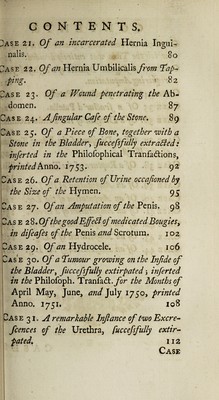 CONTENTS.
CASE 21. Of an incarcerated Hernia Ingui-
nalis. 80
CASE 22. Of an Hernia Umbilicalis from Tap-
ping. 82
CASE 23. Of a Wound penetrating the Ab-
domen. 87
CASE 24. A ſingular Caſe of the Stone. 89
CASE 25. Of a Piece of Bone, together with a
Stone in the Bladder, ſucceſsfully extracted:
inſerted in the Philoſophical Tranſactions,
printed Anno. 1753. 92
CASE 26. Of a Retention of Urine occaſioned by
the Size of the Hymen. 95
CASE 27. Of an Amputation of the Penis. 98
CASE 28. Of the good Effect of medicated Bougies,
in diſeaſes of the Penis and Scrotum. 102
CASE 29. Of an Hydrocele. 106
CASE 30. Of a Tumour growing on the Inſide of
the Bladder, ſucceſsfully extirpated; inſerted
in the Philoſoph. Tranſact. for the Months of
April May, June, and July 1750, printed
Anno. 1751. 108
CASE 31. A remarkable Inſtance of two Excre-
ſcences of the Urethra, ſucceſsfully extir-
pated. 112
CASE